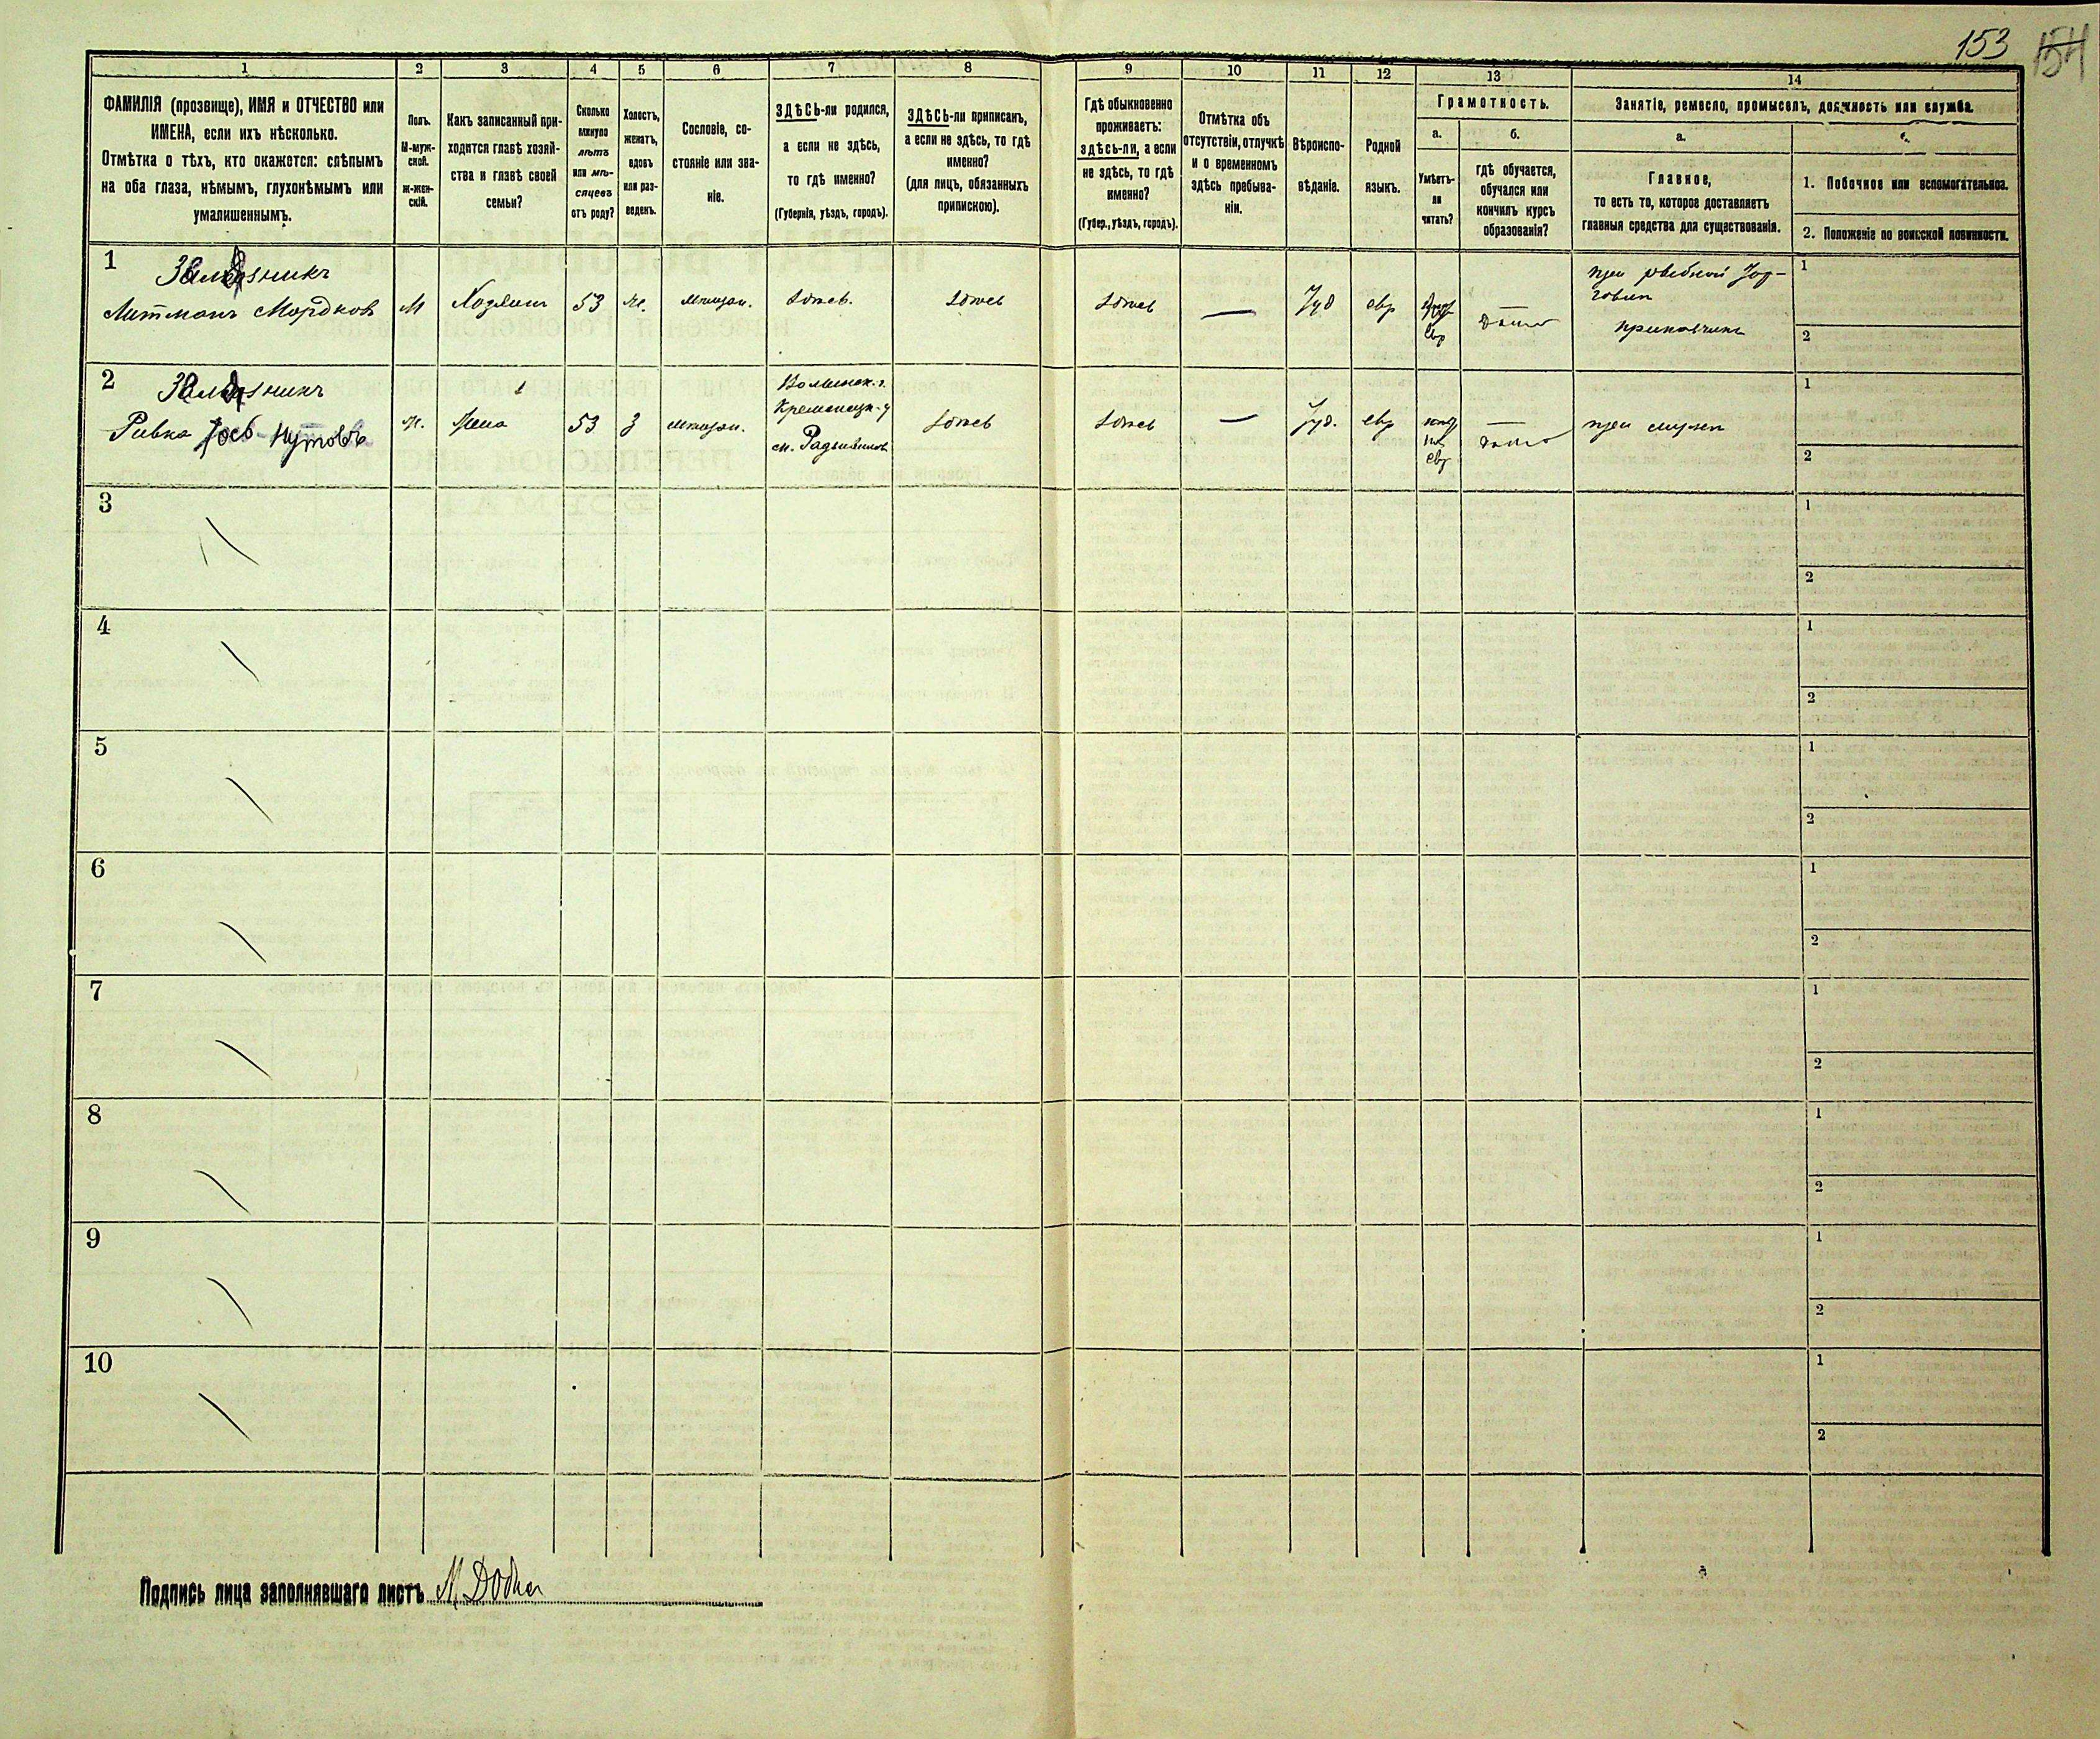 153 154
1 2 3 4 5 6 7 8 9 10 11 12 13 14
ФАМИЛІЯ (прозвище), ИМЯ и ОТЧЕСТВО или
ИМЕНА, если ихъ нѣсколько.
Отмѣтка о тѣхъ, кто окажется: слѣпымъ
на оба глаза, нѣмымъ, глухонѣмымъ или
умалишеннымъ.
Полъ.
М-муж-
ской.
ж-жен-
скій.
Какъ записанный при-
ходится главѣ хозяй-
ства и главѣ своей
семьи?
Сколько
минуло
лѣтъ
или мѣ-
сяцевъ
отъ роду?
Холостъ,
женатъ,
вдовъ
или раз-
веденъ.
Сословіе, со-
стояніе или зва-
ніе.
ЗДѢСЬ-ли родился,
а если не здѣсь,
то гдѣ именно?
(Губернія, уѣздъ, городъ).
ЗДѢСЬ-ли приписанъ,
а если не здѣсь, то гдѣ
именно?
(для лицъ, обязанныхъ
припискою).
Гдѣ обыкновенно
проживаетъ:
здѣсь-ли, а если
не здѣсь, то гдѣ
именно?
(Губер., уѣздъ, городъ).
Отмѣтка объ
отсутствіи, отлучкѣ
и о временномъ
здѣсь пребыва-
ніи.
Вѣроиспо-
вѣданіе.
Родной
языкъ.
Грамотность.
а.
Умѣетъ-
ли
читать?
б.
гдѣ обучается,
обучался или
кончилъ курсъ
образованія?
Занятіе, ремесло, промыселъ, должность или служба.
а.
Главное,
то есть то, которое доставляетъ
главныя средства для существованія.
1. Побочное или вспомогательное.
2. Положеніе по воинской повинности.
1
Литманъ Мордковъ М Хозяинъ 53 же. мѣщан. здѣсь. здѣсь здѣсь — Іуд евр евр дома при рыбной тор-
говлѣ
прикащикъ
1
2
2
Ривка ж. жена 53 з мѣщан. Волынск. г.
Кременецк. у
м. Радзивиловъ здѣсь здѣсь — Іуд. евр евр дома при мужѣ
1
2
3 1 2
4 1 2
5 1 2
6 1 2
7 1 2
8 1 2
9 1 2
10 1 2
Подпись лица заполнявшаго листъ